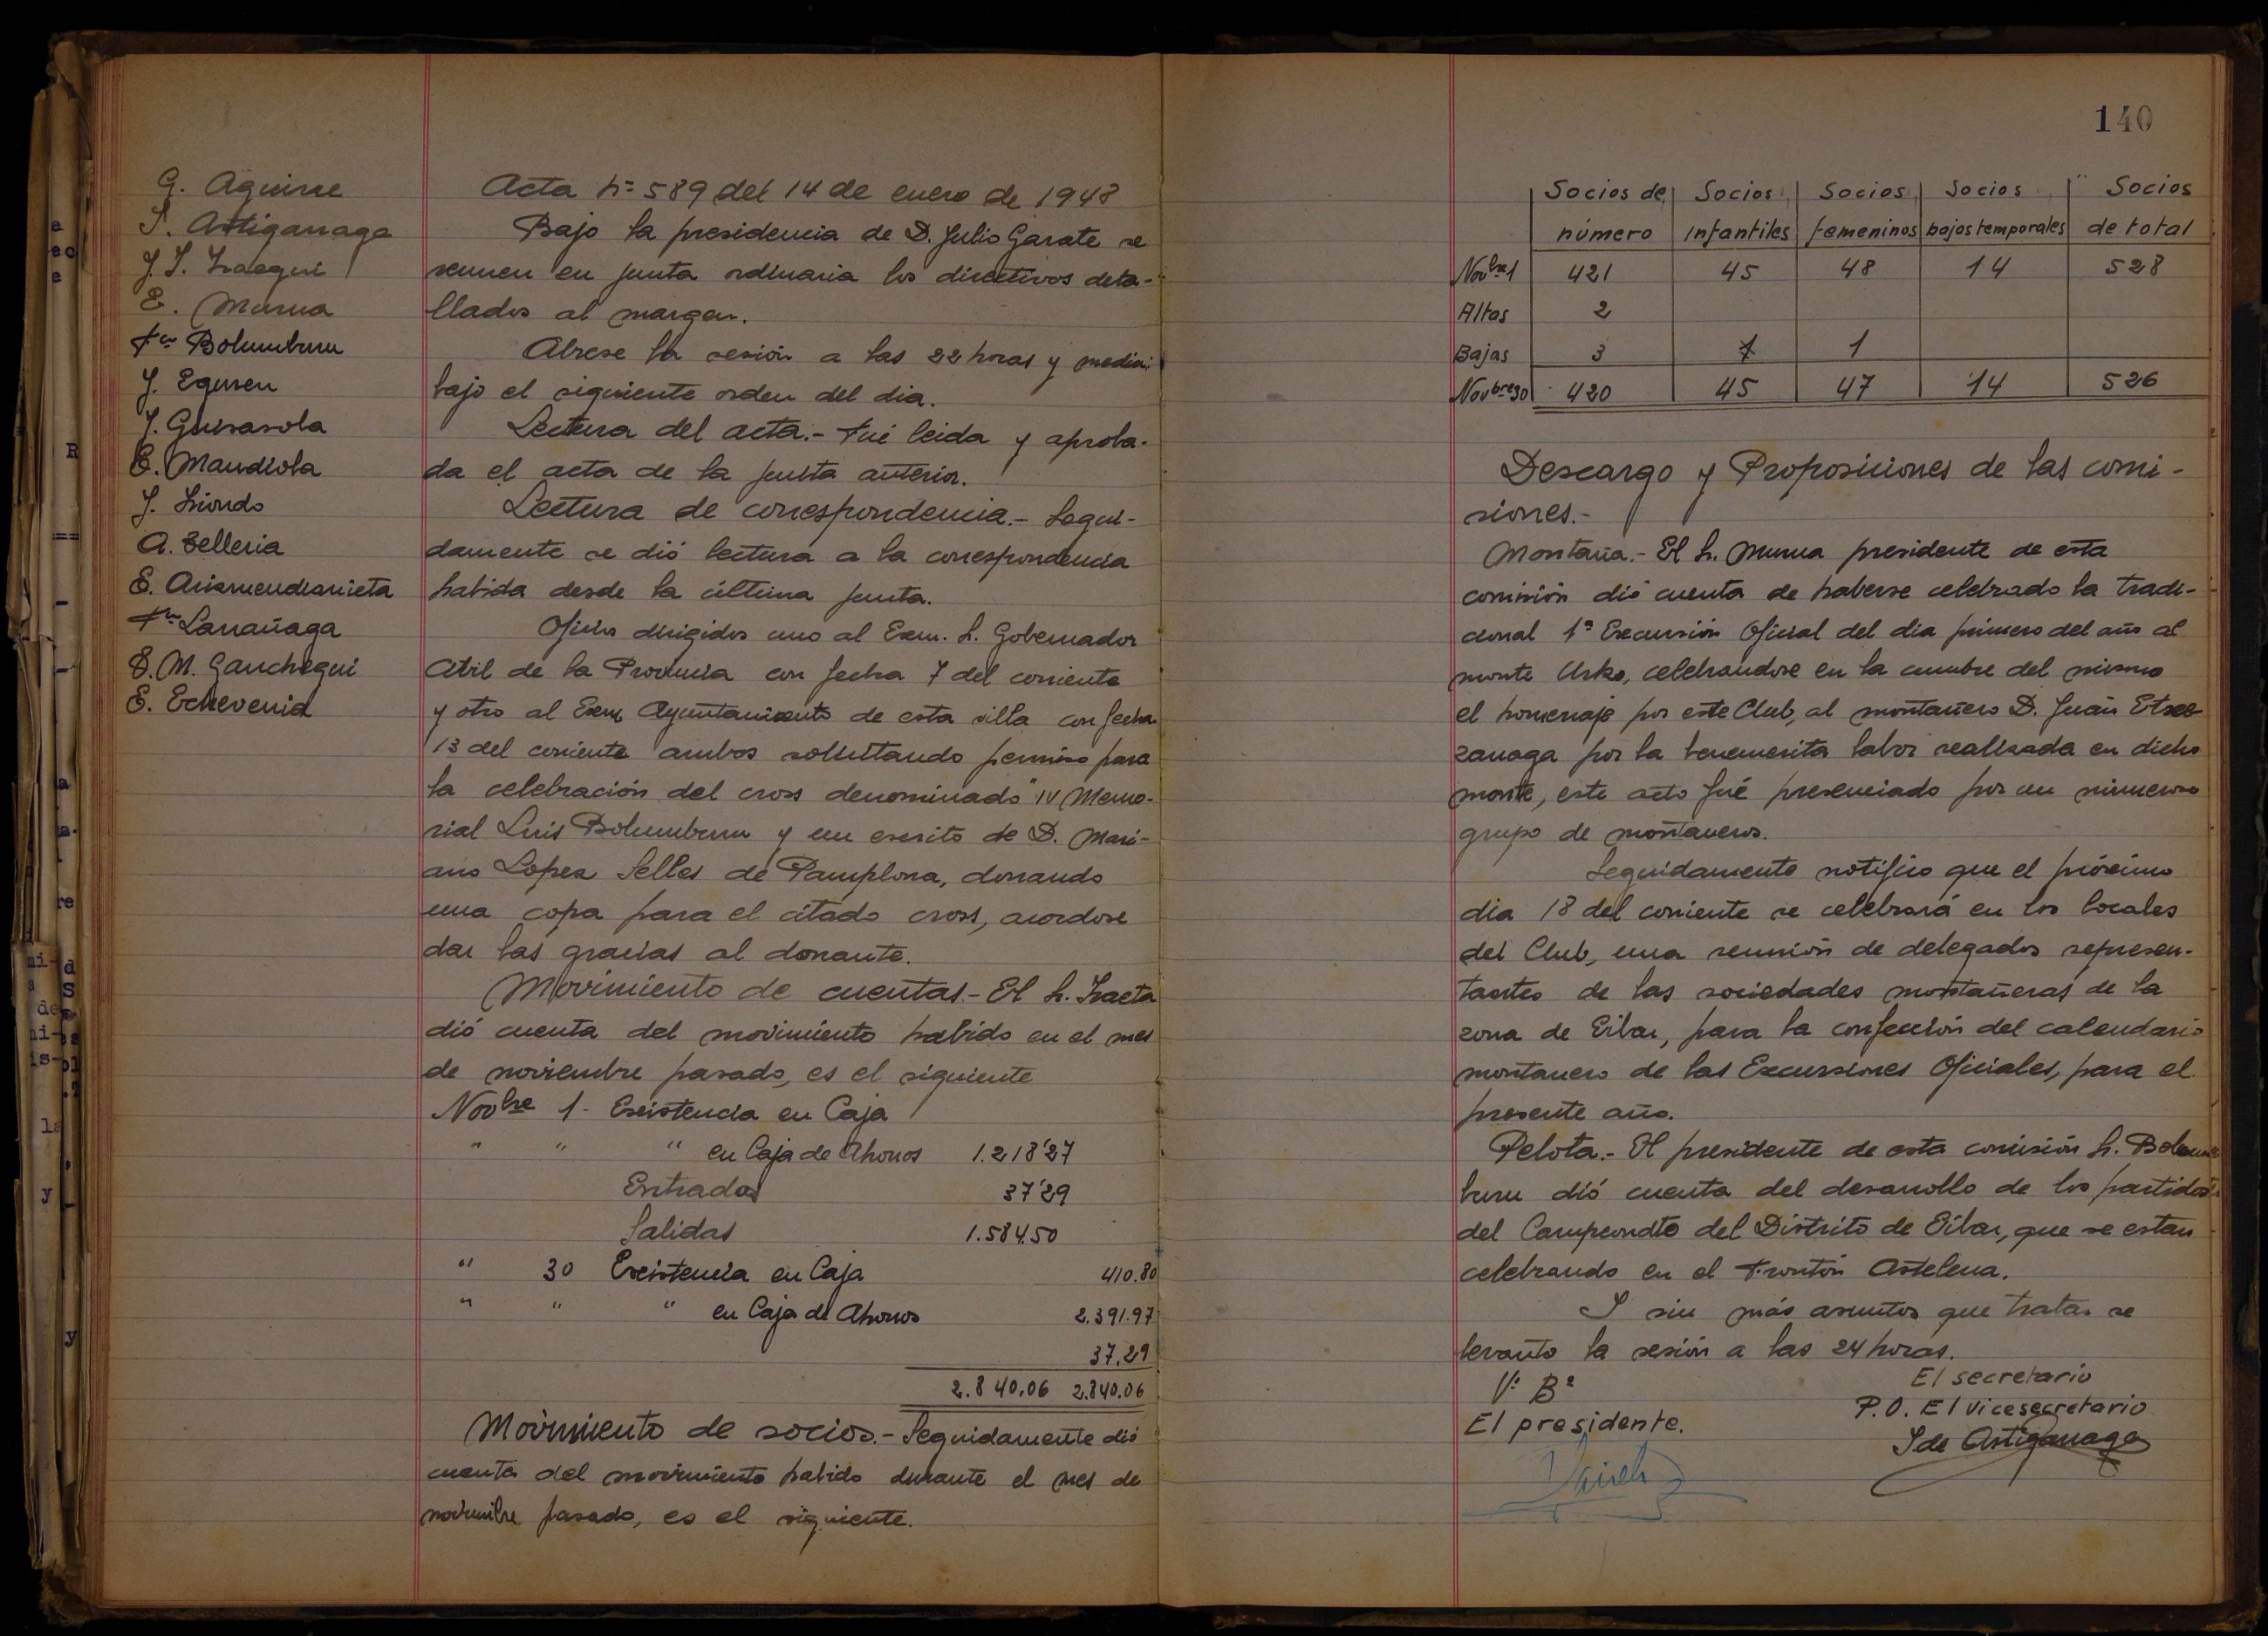 G. Aguirre
I. Astigarraga
J. I. Iraegui
E. Murua
Fco Bolumburu
J. Eguren
J. Guisasola
E. Mandiola
J. Liondo
A. Telleria
E. Arismendiarrieta
Fco Larrañaga
D. M. Ganchegui
E. Echeverria
Acta nº 589 del 14 de enero de 1948
Bajo la presidencia de D. Julio Garate se
reunen en junta ordinaria los directivos deta-
llados al margen.
Abrese la sesión a las 22 horas y media
bajo el siguiente orden del dia.
Lectura del acta.- Fué leida y aproba-
da el acta de la junta anterior.
Lectura de correspondencia.- Segui-
damente se dió lectura a la correspondencia
habida desde la última junta.
Oficios dirigidos uno al Exm. Sr. Gobernador
Civil de la Provincia con fecha 7 del corriente
y otro al Exm Ayuntamiento de esta villa con fecha
13 del corriente ambos solicitando permiso para
la celebración del cross denominado "IV Memo-
rial Luis Bolumburu y un escrito de D. Mari-
ano Lopez Selles de Pamplona, donando
una copa para el citado cross, acordose
dar las gracias al donante.
Movimiento de cuentas.- El Sr. Iraeta
dió cuenta del movimiento habido en el mes
de noviembre pasado, es el siguiente
Novbre 1 - Existencia en Caja
" " " en Caja de Ahorros 1.218'27
Entradas 37'29
Salidas 1.584.50
" 30 Existencia en Caja 410.80
" " " en Caja de Ahorros 2.391.97
37,29
2.840,06 2.840.06
Movimiento de socios.- Seguidamente dió
cuenta del movimiento habido durante el mes de
noviembre pasado, es el siguiente.
140
Socios de Socios Socios Socios Socios
número infantiles femeninos bajas temporales de total
Novbre 1 421 45 48 14 528
Altas 2
Bajas 3 1 1
Novbre 30 420 45 47 14 526
Descargo y Proposiciones de las comi-
siones.-
Montaña.- El Sr. Murua presidente de esta
comisión dió cuenta de haberse celebrado la tradi-
cional 1ª Excursión Oficial del dia primero del año al
monte Urko, celebrandose en la cumbre del mismo
el homenaje por este Club, al montañero D. Juan Etxe
zarraga por la benemerita labor realizada en dicho
monte, este acto fué presenciado por un numeroso
grupo de montañeros.
Seguidamente notifico que el próximo
dia 18 del corriente se celebrará en los locales
del Club, una reunión de delegados represen-
tantes de las sociedades montañeras de la
zona de Eibar, para la confección del calendario
montañero de las Excursiones Oficiales, para el
presente año.
Pelota.- El presidente de esta comisión Sr. Bolum
buru dió cuenta del desarrollo de los partidos
del Campeondto del Distrito de Eibar, que se estan
celebrando en el Frontón Astelena.
I sin más asuntos que tratar se
levanto la sesión a las 24 horas.
Vº Bº
El presidente.
El secretario
P.O. El vicesecretario
I de Astigarraga